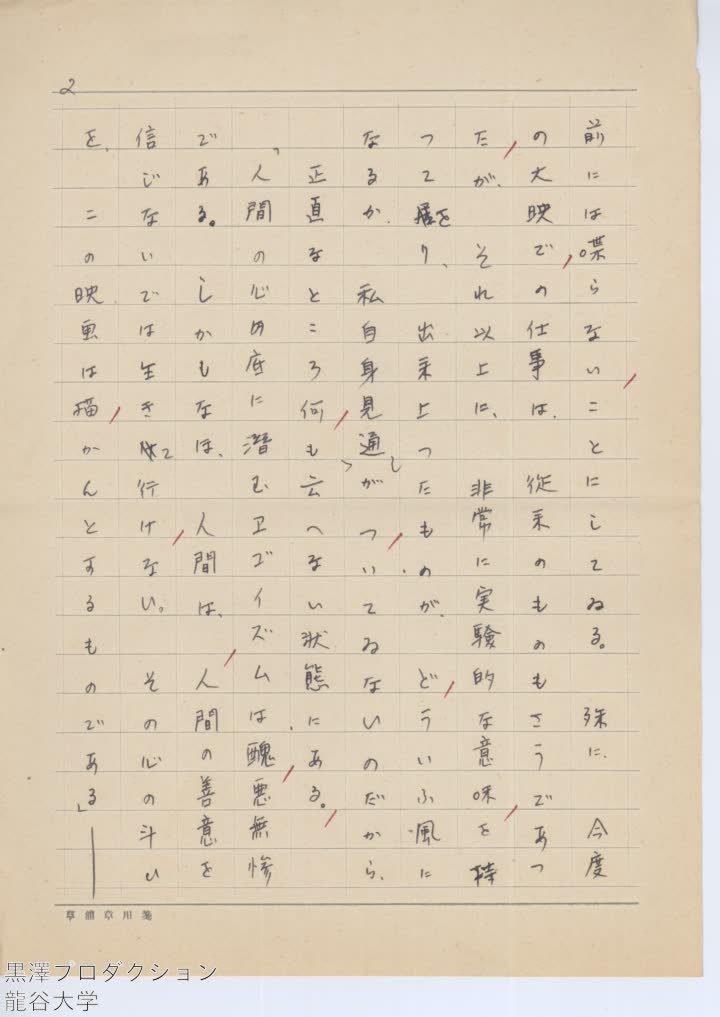 2
前には喋らないことにしてゐる。殊に、今度
の大映での仕事は、従来のものもさうであつ
たが、それ以上に、非常に実験的な意味を持
つて居り、出来上つたものが、どういふ風に
なるか、私自身見通しがついてゐないのだから、
正直なところ何も云へない状態にある。
「人間の心の底に潜むエゴイズムは、醜悪無惨
である。しかもなほ、人間は、人間の善意を
信じないでは生きて行けない。その心の斗い
を、この映画は描かんとするものである」――
黒澤プロダクション
龍谷大学